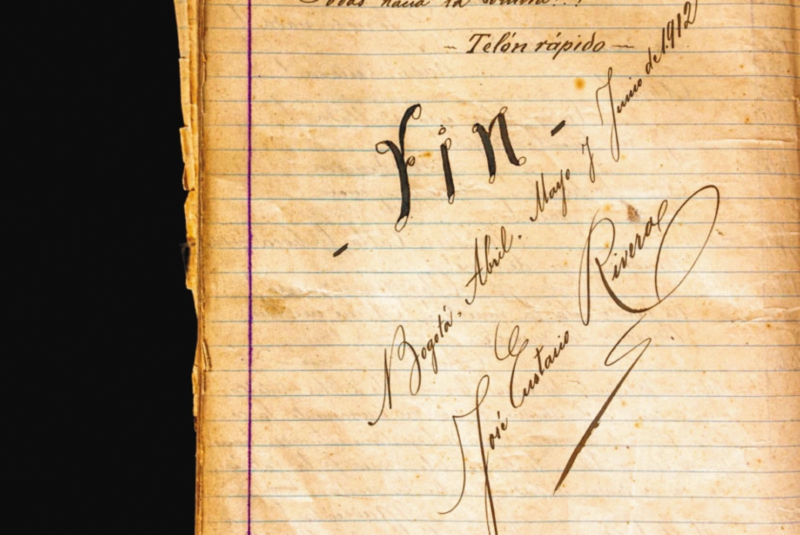 hacia la
– Telón rápido –
- Fin -
Bogotá. Abril. Mayo y Junio de 1.912
José Eustasio Rivera